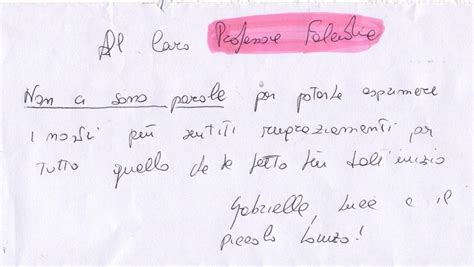 Al Caro Professore
Non ci sono parole per poterle esprimere
i nostri più sentiti ringraziamenti per
tutto quello che ha fatto fin dall'inizio
Gabriella, Luca e il
piccolo Lorenzo!